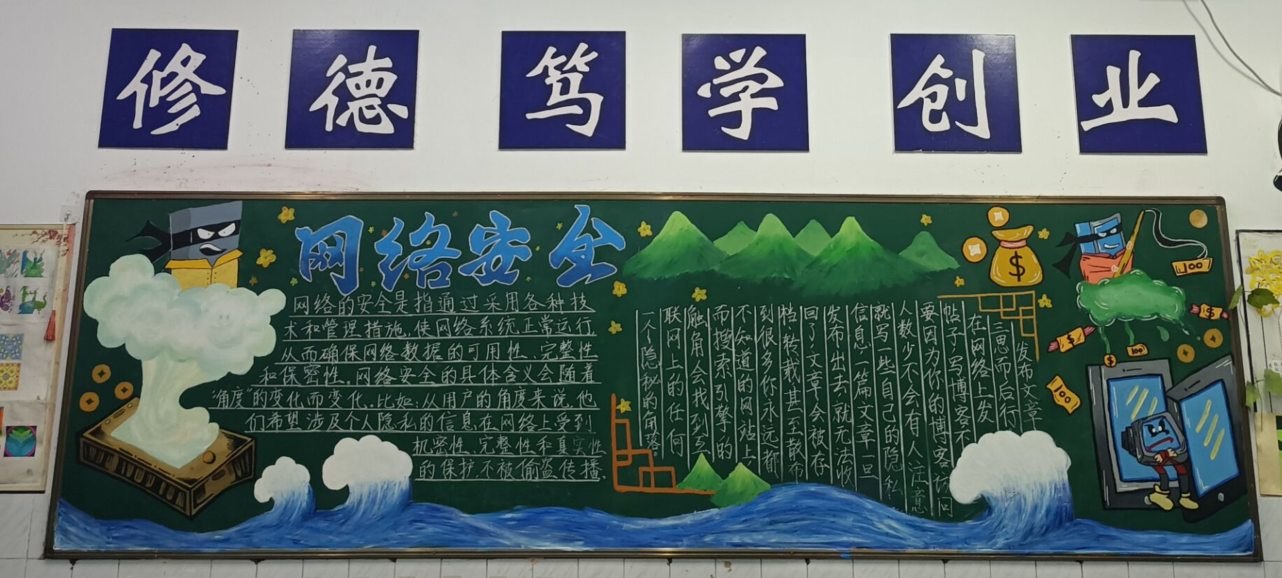 修德笃学创业
网络安全
网络的安全是指通过采用各种技
术和管理措施,使网络系统正常运行
从而确保网络数据的可用性、完整性
和保密性。网络安全的具体含义会随着
"角度"的变化而变化。比如:从用户的角度来说,他
们希望涉及个人隐私的信息在网络上受到
机密性、完整性和真实性
的保护不被偷盗传播
发布文章
三思而后行
在网络上发
帖子、写博客不
要因为你的博客访问
人数少不会有人注意
就写一些自己的隐私
信息,一篇文章一旦
发布出去就无法收
回了,文章会被存
档、转载甚至散布
到很多你永远都
不知道的网站上
而搜索引擎的
触角会找到互
联网上的任何
一个隐秘的角落
$
100
$
$
$
100